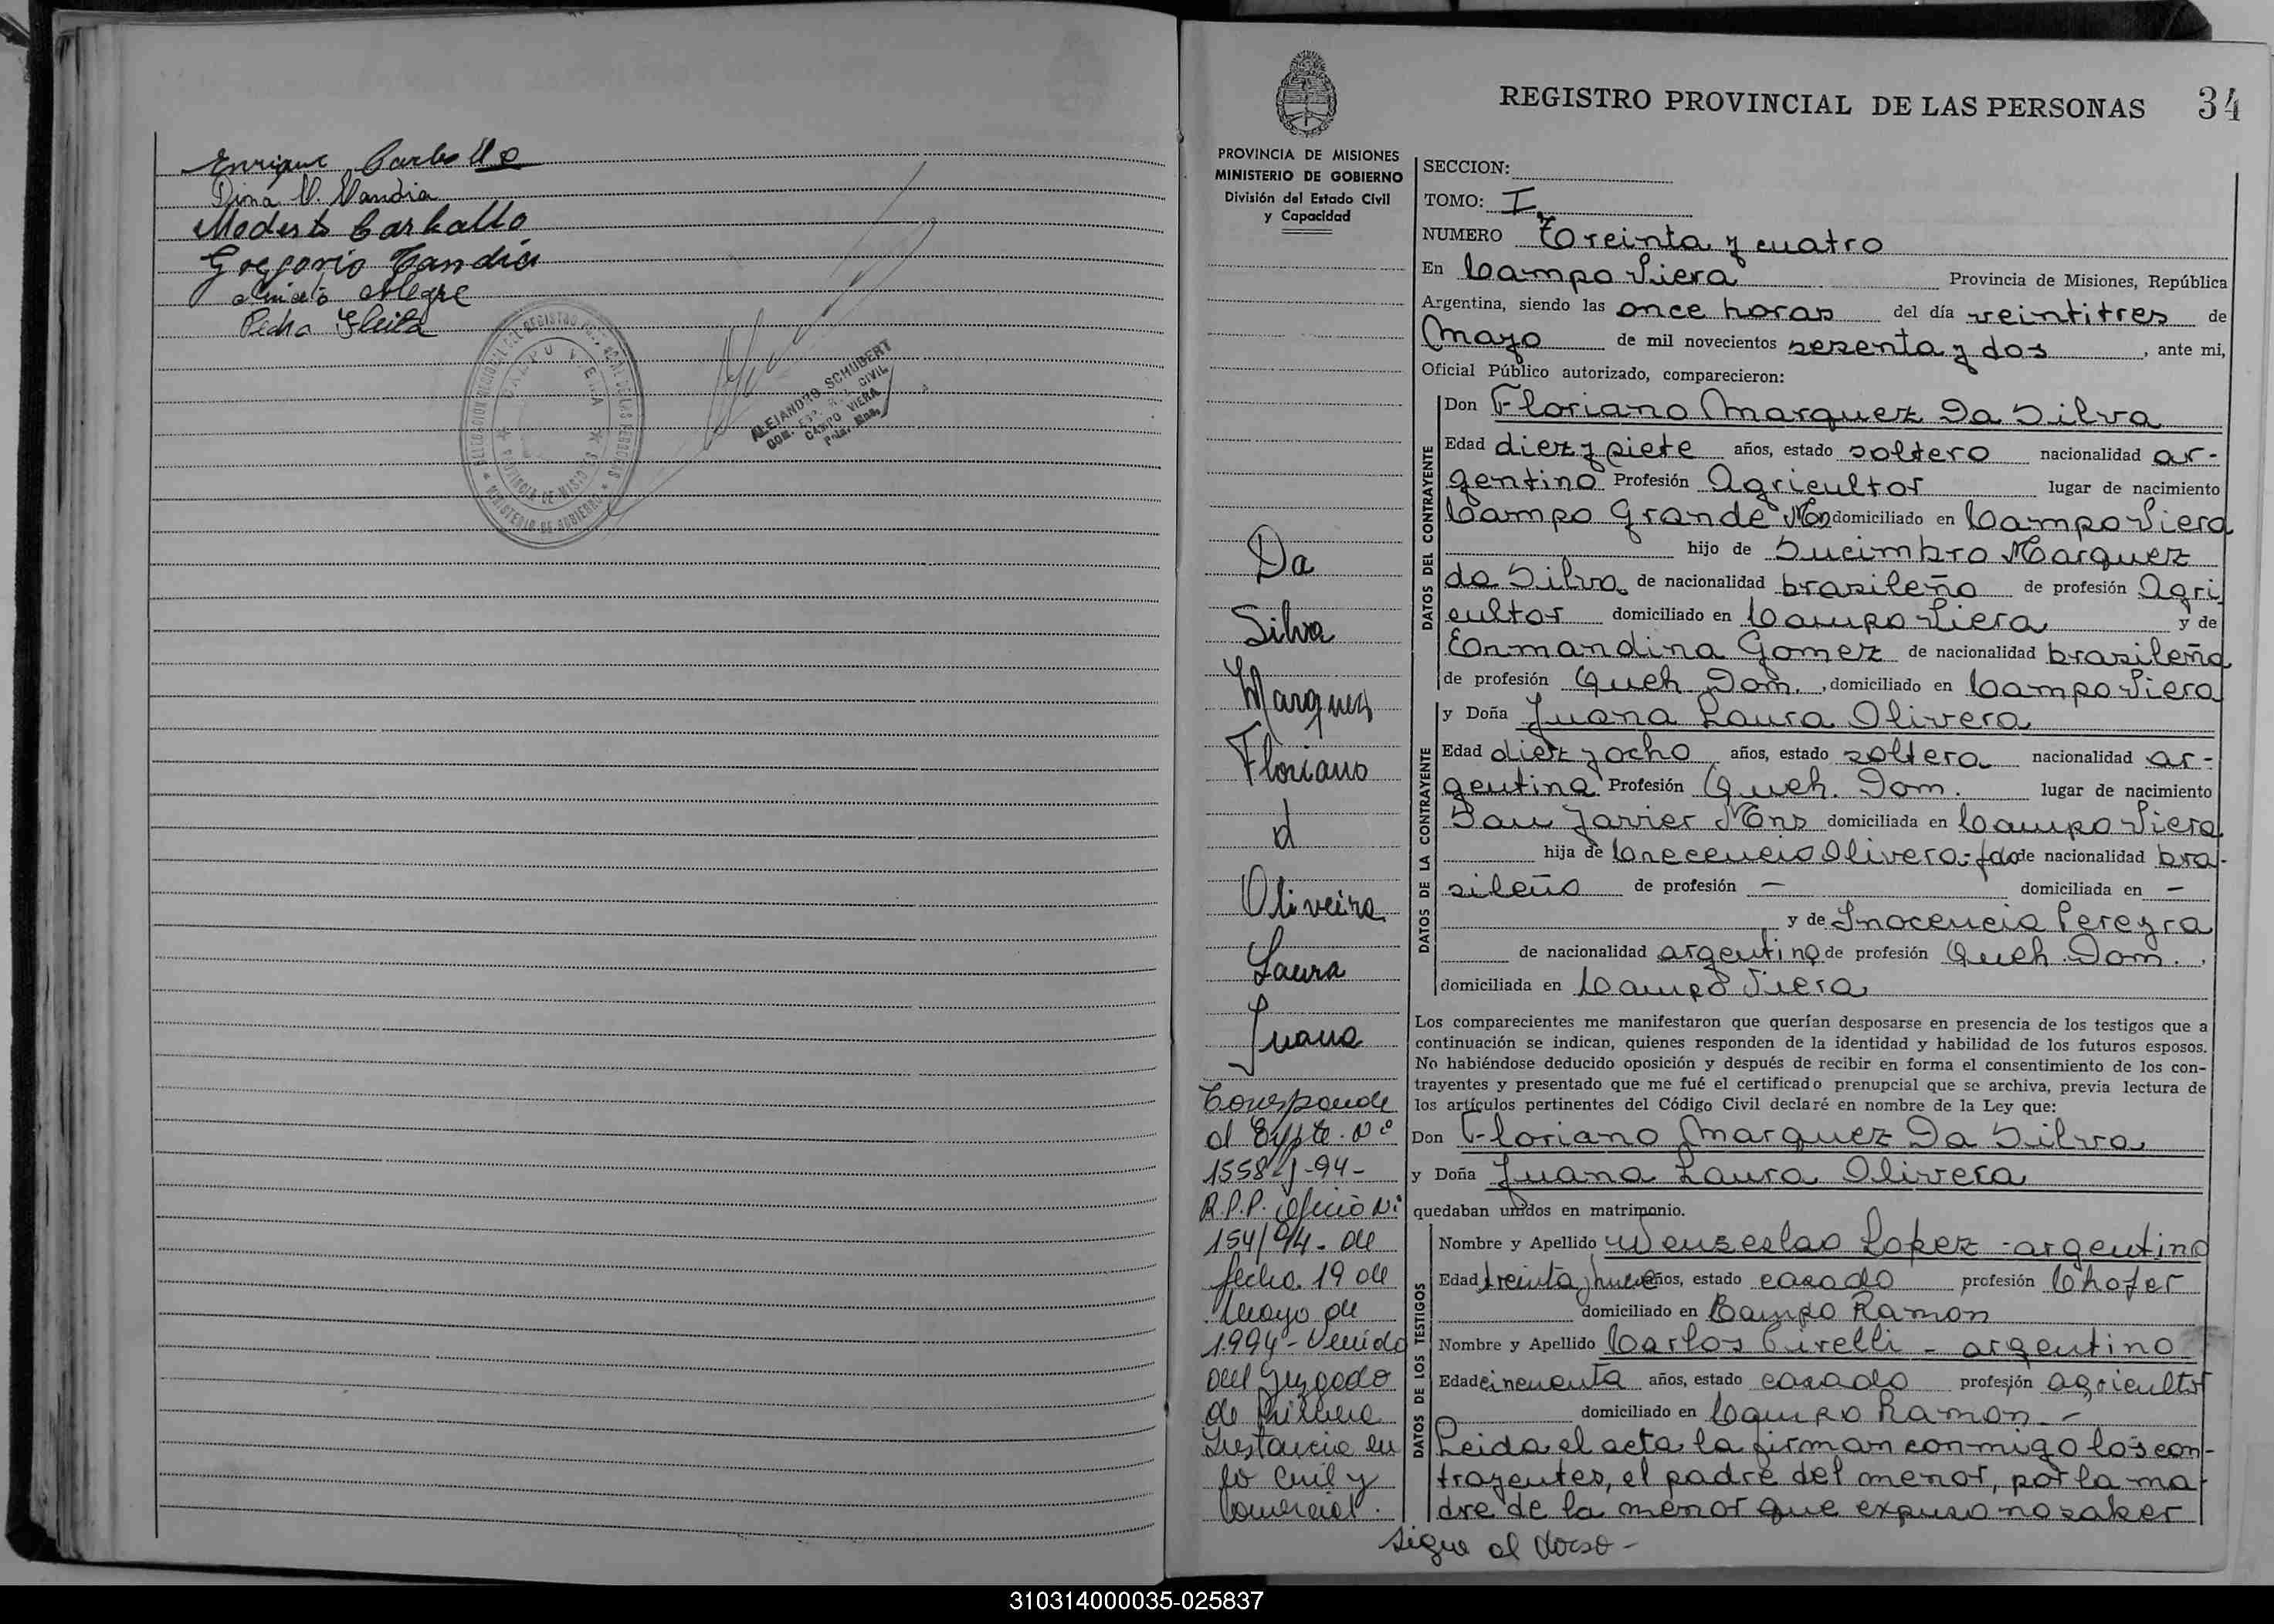 Enrique Carballo
Dina V. Vandia
Modesto Carballo
Gregorio Candia
Aniceto Alegre
Pedro Fleita
ALEJANDRO SCHUBERT
CAMPO VIERA
REGISTRO PROVINCIAL DE LAS PERSONAS 34
PROVINCIA DE MISIONES
MINISTERIO DE GOBIERNO
División del Estado Civil
y Capacidad
Da
Silva
Marquez
Floriano
d
Oliveira
Laura
Juana
Corresponde
al Expte. Nº
1558-J-94-
R.P.P. Oficio Nº
154/94. de
fecha 19 de
Mayo de
1994- Venido
del Juzgado
de Primera
Instancia en
lo Civil y
Comercial.
SECCION:
TOMO: I
NUMERO Treinta y cuatro
En Campo Viera Provincia de Misiones, República
Argentina, siendo las once horas del día veintitres de
Mayo de mil novecientos sesenta y dos, ante mi,
Oficial Público autorizado, comparecieron:
DATOS DEL CONTRAYENTE
Don Floriano Marquez Da Silva
Edad diez y siete años, estado soltero nacionalidad ar-
gentino Profesión Agricultor lugar de nacimiento
Campo Grande Mns domiciliado en Campo Viera
hijo de Sucimbro Marquez
da Silva de nacionalidad brasileño de profesión Agri
cultor domiciliado en Campo Viera y de
Ermandina Gomez de nacionalidad brasileña
de profesión Queh. Dom., domiciliado en Campo Viera
DATOS DE LA CONTRAYENTE
y Doña Juana Laura Olivera
Edad diez y ocho años, estado soltera nacionalidad ar-
gentina Profesión Queh. Dom. lugar de nacimiento
San Javier Mns domiciliada en Campo Viera
hija de Crecencio Olivera-fdo de nacionalidad bra-
sileño de profesión - domiciliada en -
y de Inocencia Pereyra
de nacionalidad argentina de profesión Queh. Dom.,
domiciliada en Campo Viera
Los comparecientes me manifestaron que querían desposarse en presencia de los testigos que a
continuación se indican, quienes responden de la identidad y habilidad de los futuros esposos.
No habiéndose deducido oposición y después de recibir en forma el consentimiento de los con-
trayentes y presentado que me fué el certificado prenupcial que se archiva, previa lectura de
los artículos pertinentes del Código Civil declaré en nombre de la Ley que:
Don Floriano Marquez Da Silva
y Doña Juana Laura Olivera
quedaban unidos en matrimonio.
DATOS DE LOS TESTIGOS
Nombre y Apellido Wenzeslao Lopez - argentino
Edad treinta y nueve años, estado casado profesión Chofer
domiciliado en Campo Ramon
Nombre y Apellido Carlos Cirelli - argentino
Edad cincuenta años, estado casado profesión agricultor
domiciliado en Campo Ramon -
Leida el acta la firman conmigo los con-
trayentes, el padre del menor, por la ma-
dre de la menor que expuso no saber
sigue al dorso -
310314000035-025837